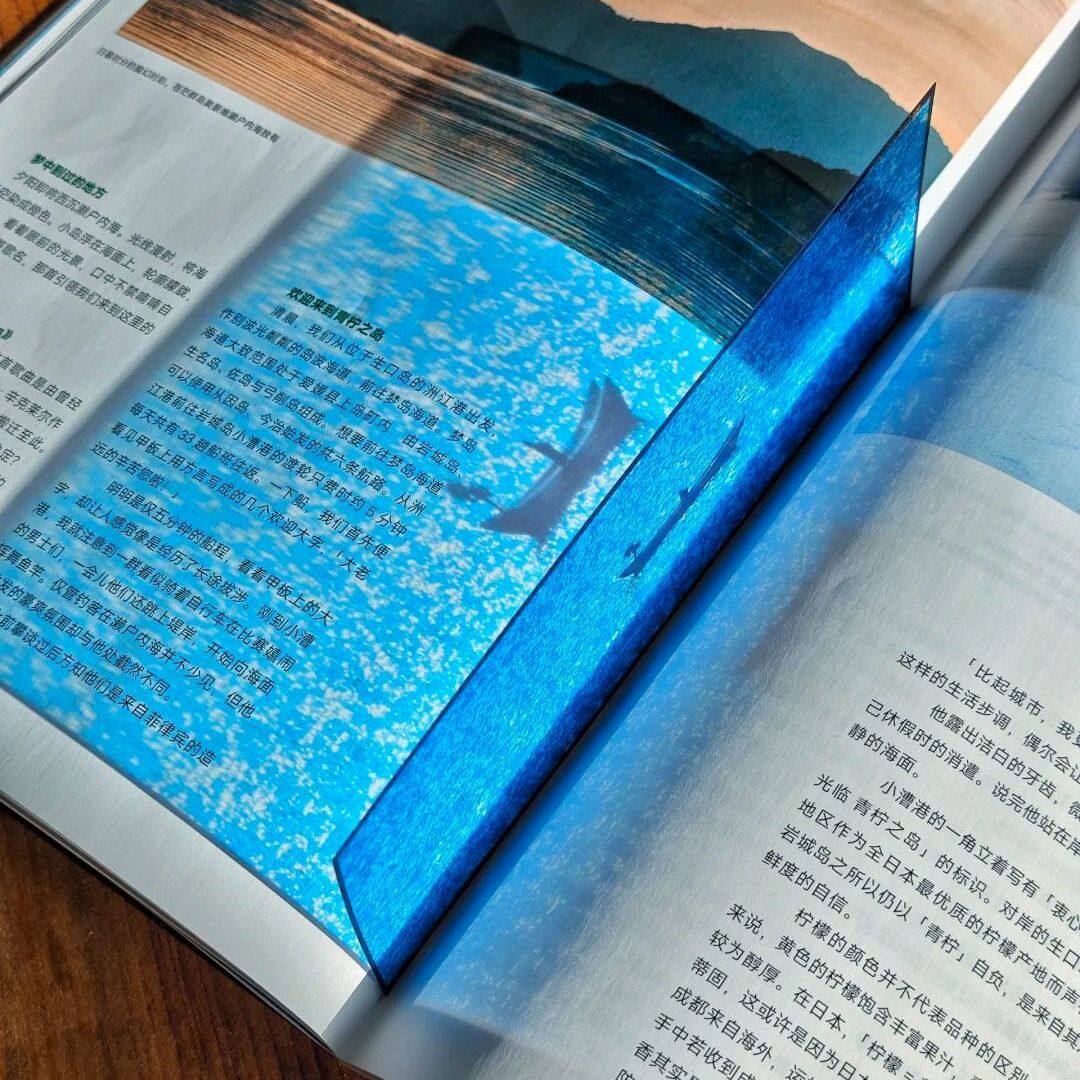 日暮时分的魔幻时刻，苍茫群岛美景惟濑户内海独有
梦中到过的地方
夕阳即将西沉濑户内海。光线漫射，将海
空染成橙色。小岛浮在海面上，轮廓朦胧，
看着眼前的光景，口中不禁喃喃自
歌名，那首引领我们来到这里的
首歌曲是由曾经
辛克莱尔作
搬迁至此。
定？
的
欢迎来到青柠之岛
清晨，我们从位于生口岛的洲江港出发，
作别波光粼粼的岛波海道，前往梦岛海道。梦岛
海道大致范围处于爱媛县上岛町内，由岩城岛、
生名岛、佐岛与弓削岛组成。想要前往梦岛海道，
可以使用从因岛、今治始发的共六条航路。从洲
江港前往岩城岛小漕港的渡轮只费时约 5 分钟，
每天共有 33 趟船班往返。一下船，我们首先便
看见甲板上用方言写成的几个欢迎大字，「大老
远的辛苦您啦！」
明明是仅五分钟的船程，看着甲板上的大
字，却让人感觉像是经历了长途跋涉。刚到小漕
港，我就注意到一群看似骑着自行车在比赛嬉闹
的男士们，一会儿他们还跳上堤岸，开始向海面
挥舞鱼竿。仅管钓客在濑户内海并不少见，但他
发的豪爽氛围却与他处截然不同。
前攀谈过后方知他们是来自菲律宾的造
「比起城市，我
这样的生活步调，偶尔会让
他露出洁白的牙齿，微
己休假时的消遣。说完他站在岸
静的海面。
小漕港的一角立着写有「衷心
光临 青柠之岛」的标识。对岸的生口
地区作为全日本最优质的柠檬产地而声
岩城岛之所以仍以「青柠」自负，是来自其
鲜度的自信。
柠檬的颜色并不代表品种的区别
来说，黄色的柠檬饱含丰富果汁，
较为醇厚。在日本，「柠檬
蒂固，这或许是因为日本
成都来自海外，运
手中若收到成
香其实